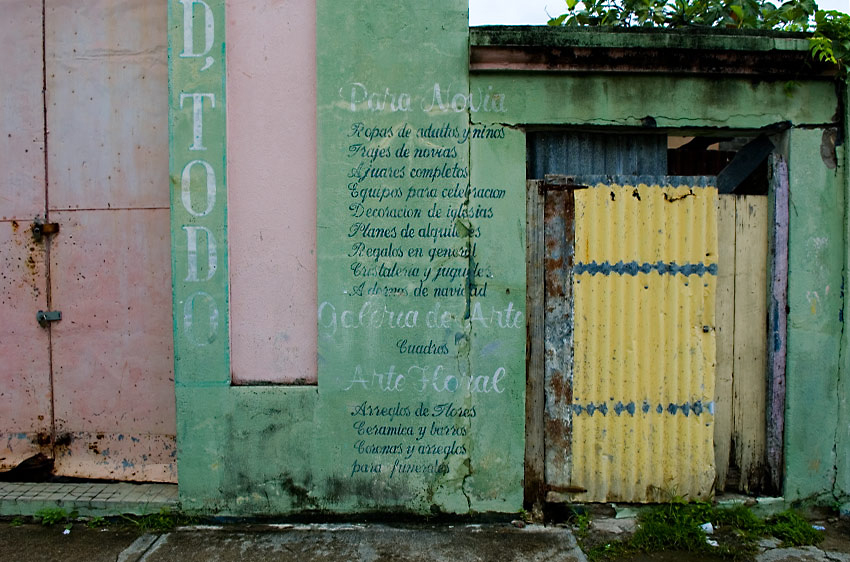 D, TODO
Para Novia
Ropas de adultos y niños
Trajes de novias
Ajuares completos
Equipos para celebracion
Decoracion de iglesias
Planes de alquileres
Regalos en general
Cristaleria y juguetes
Adornos de navidad
Galeria de Arte
Cuadros
Arte Floral
Arreglos de Flores
Ceramica y barros
Coronas y arreglos
para funerales